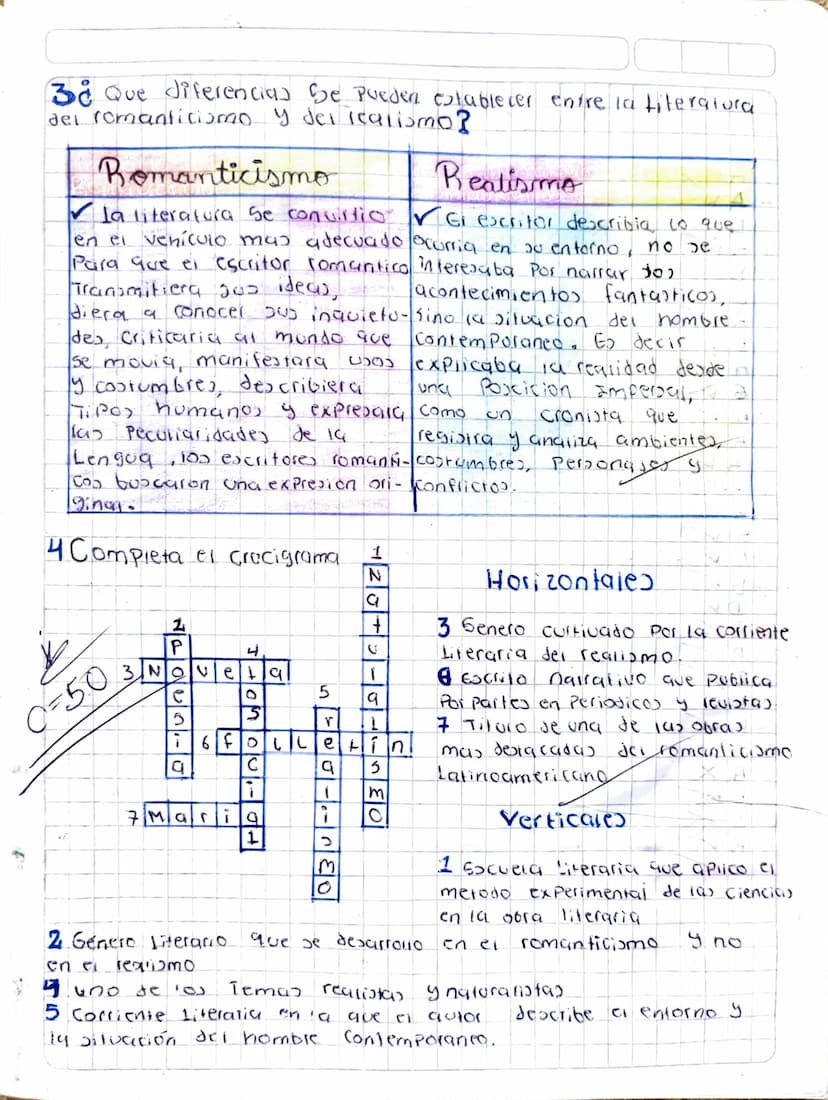 3¿ Que diferencias Se Pueden establecer entre la Literatura
del romanticismo y del realismo?
Romanticismo
✓ La literatura Se convirtio
en el vehículo mas adecuado
Para que el escritor romantico
Transmitiera sus ideas,
diera a conocer sus inquietu-
des, criticaria al mundo que
se movia, manifestara usos
y costumbres, describiera
Tipos humanos y expresara
las peculiaridades de la
Lengua, los escritores romanti-
cos buscaron una expresion ori-
ginal.
Realismo
✓ El escritor describia lo que
ocurria en su entorno, no se
interesaba Por narrar los
acontecimientos fantasticos,
Sino la situacion del hombre
contemporaneo. Es decir
explicaba la realidad desde
una Poscicion Impersal,
como un cronista que
registra y analiza ambientes,
costumbres, Personajes y
conflictos.
4 Completa el crucigrama
1
Naturalismo
2
Poesia
3 Novela
4
Social
5
realismo
6 follletin
7 Maria
C=50
Horizontales
3 Genero cultivado Por la corriente
Literaria del realismo.
6 Escrito narrativo que publica
Por partes en Periodicos y revistas
7 Titulo de una de las obras
mas destacadas del romanticismo
Latinoamericano
Verticales
1 Escuela Literaria que aplico el
metodo experimental de las ciencias
en la obra literaria
2 Género Literario que se desarrollo en el romanticismo y no
en el realismo
4 uno de los Temas realistas y naturalistas
5 Corriente Literaria en la que el autor describe el entorno y
la situación del hombre contemporaneo.